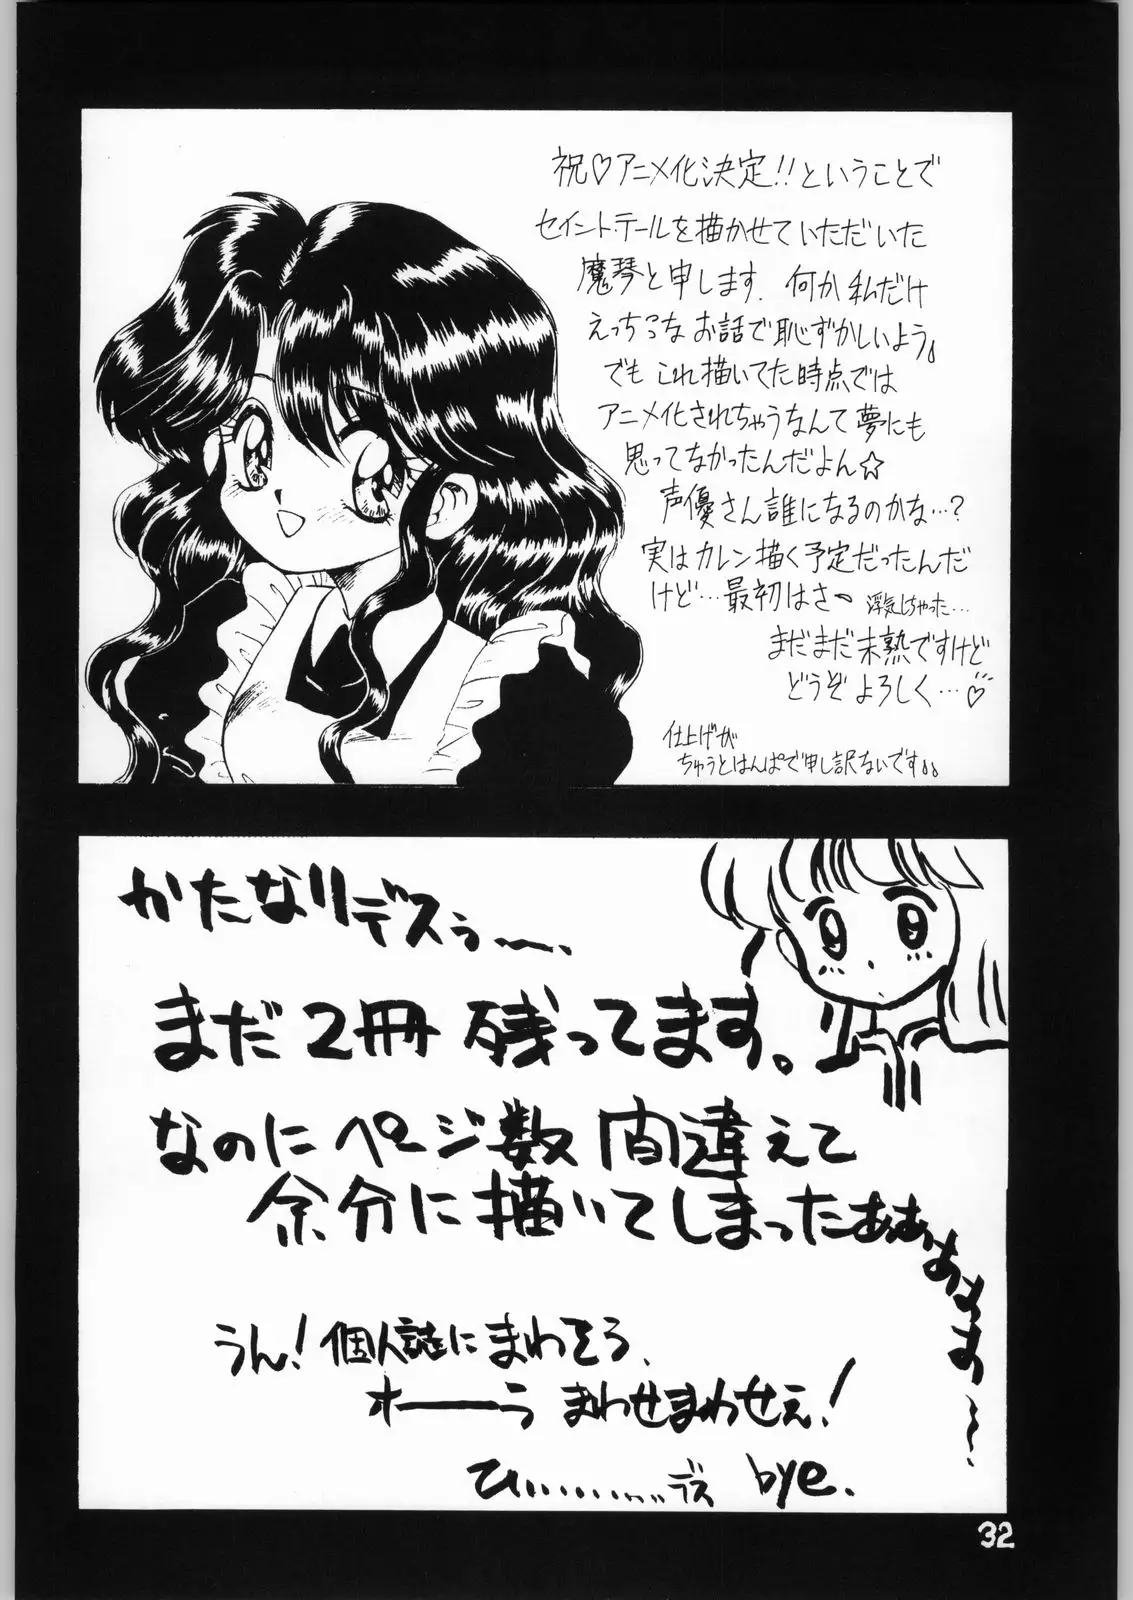 祝♡アニメ化決定!!ということで
セイント・テールを描かせていただいた
魔琴と申します. 何か私だけ
えっちっな お話で恥ずかしいよう
でも これ描いてた時点では
アニメ化されちゃうなんて夢にも
思ってなかったんだよん☆
声優さん誰になるのかな…?
実はカレン描く予定だったんだ
けど…最初はさ〜 浮気しちゃった…
まだまだ未熟ですけど
どうぞ よろしく…♡
仕上げが
ちゅうとはんぱで申し訳ないです
かたなりデスぅ〜、
まだ2冊 残ってます。
なのにページ数 間違えて
余分に描いてしまったぁぁぁぁぁ〜〜
うん! 個人誌にまわそう、
オーーう まわせまわせぇ!
ひ.........デス bye.
32